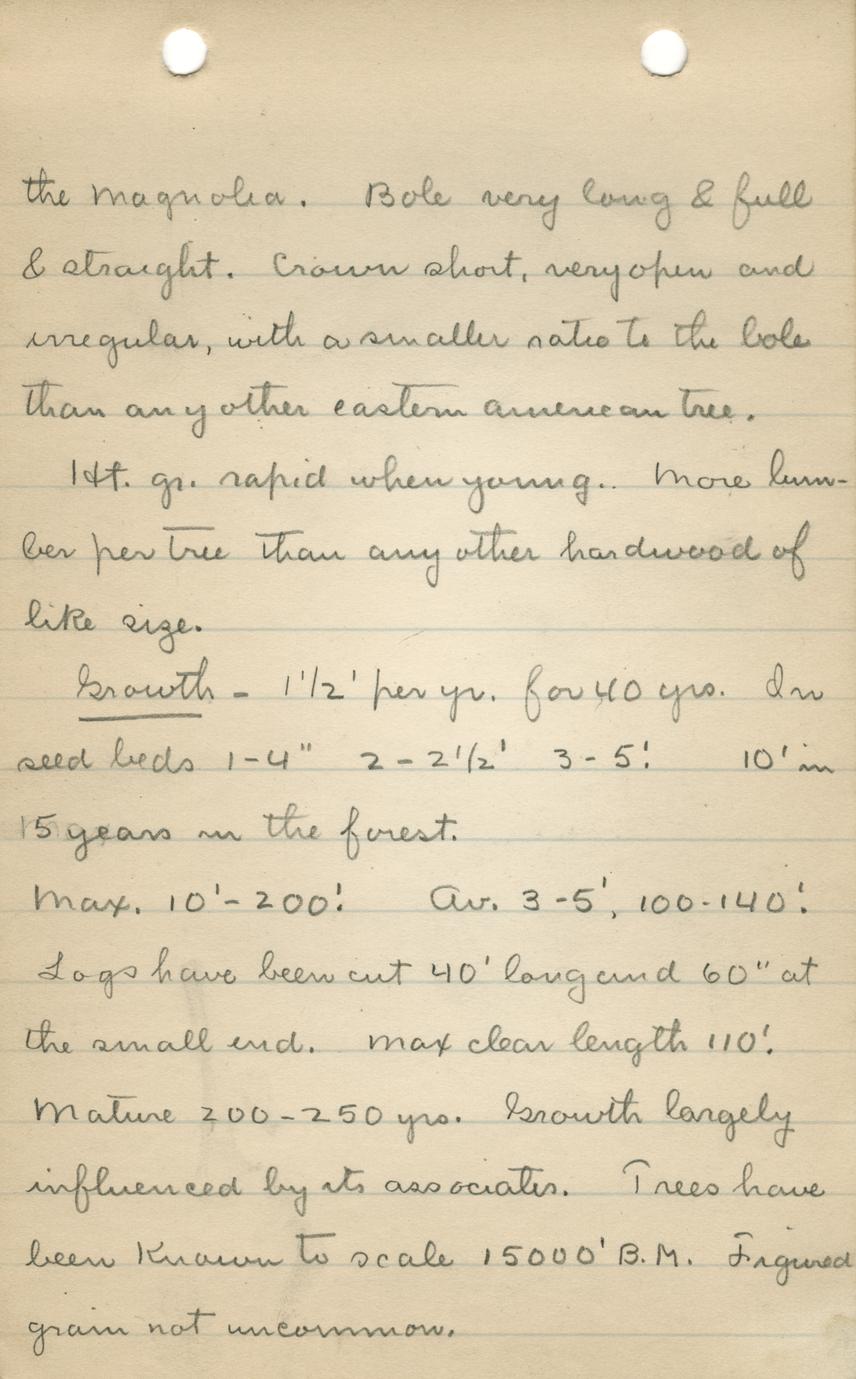 the Magnolia. Bole very long & full
& straight. Crown short, very open and
irregular, with a smaller ratio to the bole
than any other eastern american tree.
Ht. gr. rapid when young.. More lum-
ber per tree than any other hardwood of
like size.
Growth - 1 1/2' per yr. for 40 yrs. In
seed beds 1-4" 2-2 1/2' 3-5'. 10' in
15 years in the forest.
Max. 10'-200'. Av. 3-5', 100-140'.
Logs have been cut 40' long and 60" at
the small end. Max clear length 110'.
Mature 200-250 yrs. Growth largely
influenced by its associates. Trees have
been known to scale 15000' B.M. Figured
grain not uncommon.